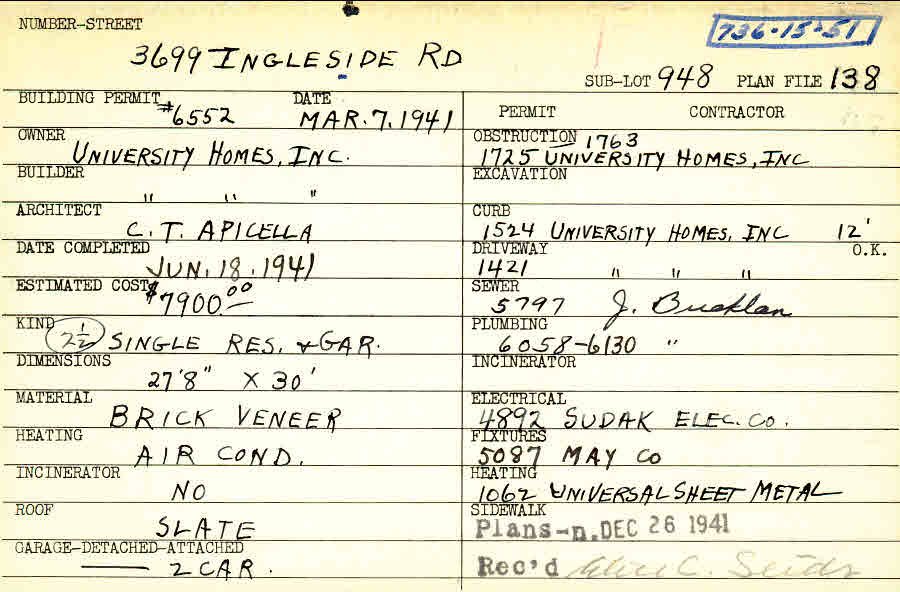 NUMBER-STREET
736-15-51
3699 INGLESIDE RD
SUB-LOT 948 PLAN FILE 138
BUILDING PERMIT #6552 DATE MAR. 7. 1941
OWNER UNIVERSITY HOMES, INC.
BUILDER " " "
ARCHITECT C. T. APICELLA
DATE COMPLETED JUN. 18. 1941
ESTIMATED COST $7900.00
KIND 2½ SINGLE RES. & GAR.
DIMENSIONS 27'8" X 30'
MATERIAL BRICK VENEER
HEATING AIR COND.
INCINERATOR NO
ROOF SLATE
GARAGE-DETACHED-ATTACHED
—— 2 CAR.
PERMIT CONTRACTOR
OBSTRUCTION 1763
1725 UNIVERSITY HOMES, INC
EXCAVATION
CURB
1524 UNIVERSITY HOMES, INC 12'
DRIVEWAY O.K.
1421 " " "
SEWER
5797 J.
PLUMBING
6058-6130 "
INCINERATOR
ELECTRICAL
4892 SUDAK ELEC. CO.
FIXTURES
5087 MAY CO
HEATING
1062 UNIVERSAL SHEET METAL
SIDEWALK
Plans-n. DEC 26 1941
Rec'd C.